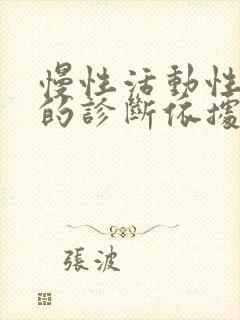 慢性活動性
的診斷依據
張波